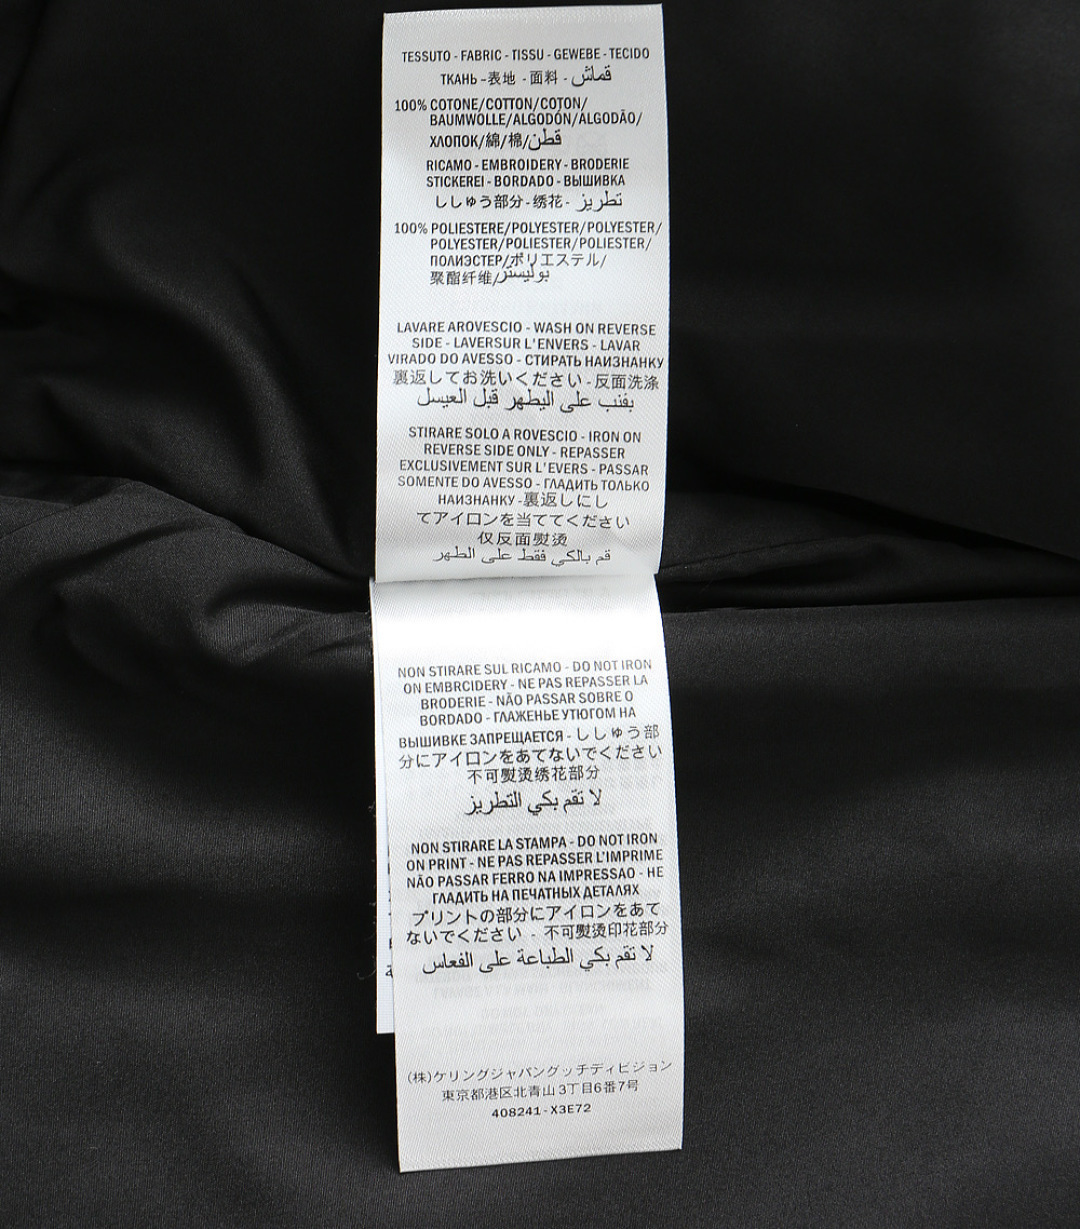 TESSUTO - FABRIC - TISSU - GEWEBE - TECIDO
ТКАНЬ - 表地 - 面料 - قماش
100% COTONE/COTTON/COTON/
BAUMWOLLE/ALGODÓN/ALGODÃO/
ХЛОПОК/綿/棉/قطن
RICAMO - EMBROIDERY - BRODERIE
STICKEREI - BORDADO - ВЫШИВКА
ししゅう部分 - 绣花 - تطريز
100% POLIESTERE/POLYESTER/POLYESTER/
POLYESTER/POLIESTER/POLIESTER/
ПОЛИЭСТЕР/ポリエステル/
聚酯纤维/بوليستر
LAVARE AROVESCIO - WASH ON REVERSE
SIDE - LAVERSUR L'ENVERS - LAVAR
VIRADO DO AVESSO - СТИРАТЬ НАИЗНАНКУ
裏返してお洗いください - 反面洗涤
بفنب على اليطهر قبل العيسل
STIRARE SOLO A ROVESCIO - IRON ON
REVERSE SIDE ONLY - REPASSER
EXCLUSIVEMENT SUR L'EVERS - PASSAR
SOMENTE DO AVESSO - ГЛАДИТЬ ТОЛЬКО
НАИЗНАНКУ - 裏返しにし
てアイロンを当ててください
仅反面熨烫
قم بالكي فقط على الظهر
NON STIRARE SUL RICAMO - DO NOT IRON
ON EMBRCIDERY - NE PAS REPASSER LA
BRODERIE - NÃO PASSAR SOBRE O
BORDADO - ГЛАЖЕНЬЕ УТЮГОМ НА
ВЫШИВКЕ ЗАПРЕЩАЕТСЯ - ししゅう部
分にアイロンをあてないでください
不可熨烫绣花部分
لا تقم بكي التطريز
NON STIRARE LA STAMPA - DO NOT IRON
ON PRINT - NE PAS REPASSER L'IMPRIME
NÃO PASSAR FERRO NA IMPRESSAO - НЕ
ГЛАДИТЬ НА ПЕЧАТНЫХ ДЕТАЛЯХ
プリントの部分にアイロンをあて
ないでください - 不可熨烫印花部分
لا تقم بكي الطباعة على الفعاس
(株)ケリングジャパングッチディビジョン
東京都港区北青山3丁目6番7号
408241-X3E72